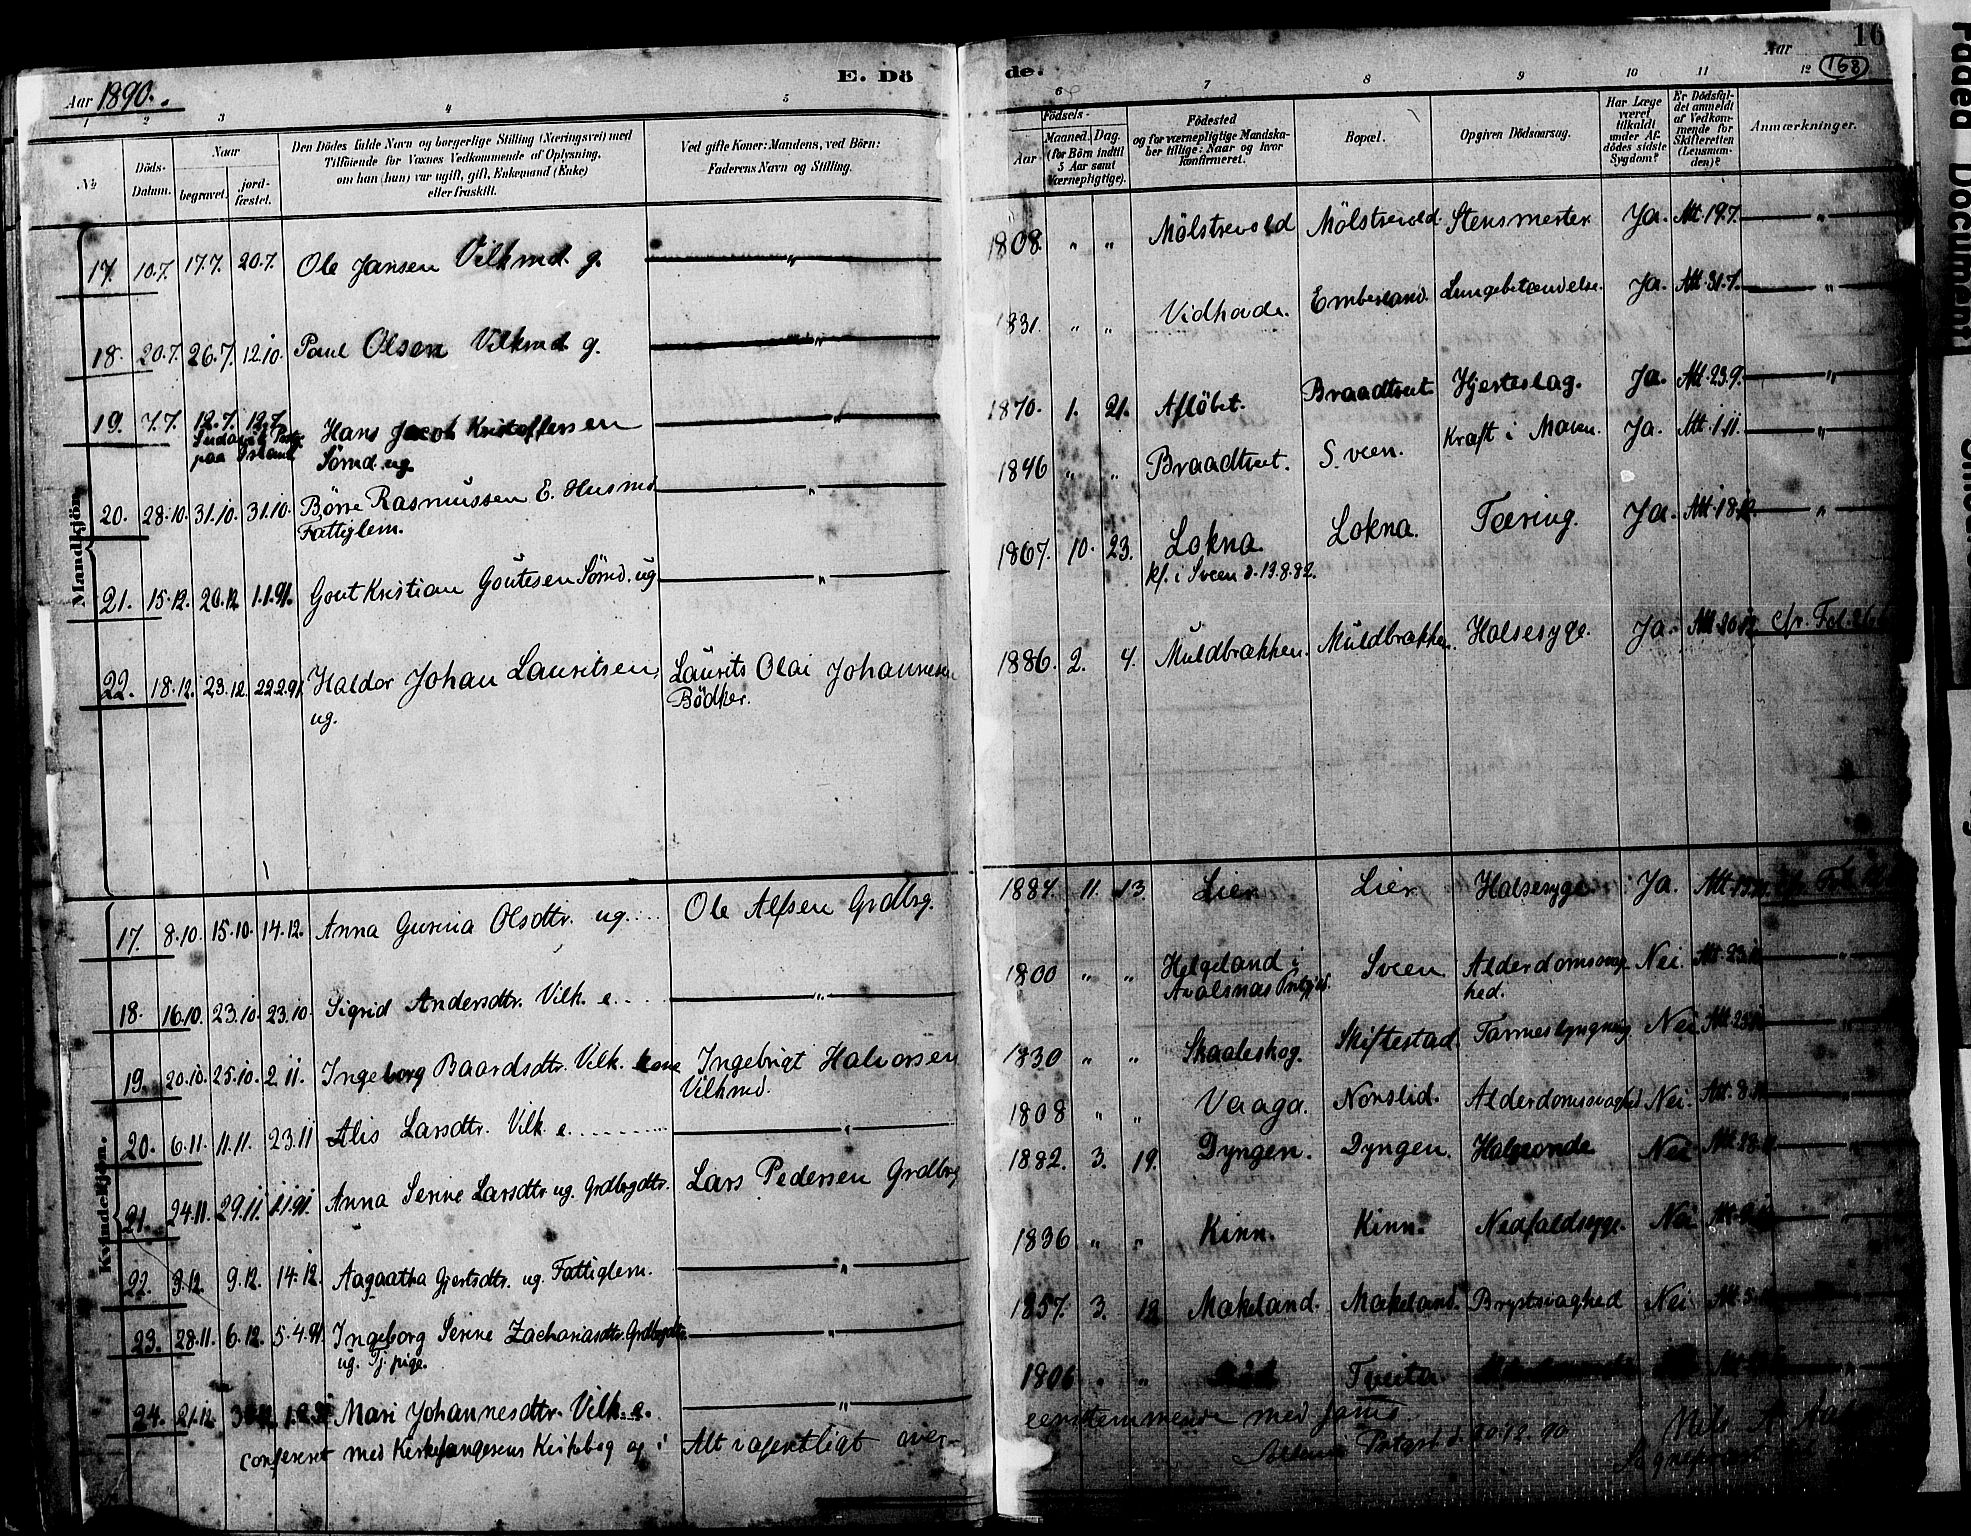 Aar 1890.
E. Dö
de.
Aar
16
168
1 2 3 4 5 6 7 8 9 10 11 12
№
Döds-Datum.
Naar
begravet.
jordfæstet.
Den Dödes fulde Navn og borgerlige Stilling (Næringsvei) med
Tilföiende for Voxnes Vedkommende af Oplysning,
om han (hun) var ugift, gift, Enkemand (Enke)
eller fraskilt.
Ved gifte Koner: Mandens, ved Börn:
Faderens Navn og Stilling.
Födsels-
Aar
Maaned. Dag.
(for Börn indtil
5 Aar samt
Værnepligtige).
Födested
og for værnepligtige Mandska-
ber tillige: Naar og hvor
konfirmeret.
Bopæl.
Opgiven Dödsaarsag.
Har Læge
været
tilkaldt
under Af-
dödes sidste
Sygdom?
Er Dödsfal-
det anmeldt
af Vedkom-
mende for
Skifteretten
(Lensman-
den)?
Anmærkninger.
Mandkjön.
17. 10.7. 17.7. 20.7. Ole Jansen Vilkmd. g. — " — 1808 " " Mölstrevold Mölstrevold Stensmerter Ja. Att. 19.7. — " —
18. 20.7. 26.7. 12.10. Poul Olsen Vilkmd g. — " — 1831. " " Vidhade. Emberland. Lungebetændelse. Ja. Att. 31.7. — " —
19. 7.7. 12.7. 12.7. Hans Jacob Kristoffersen — " — 1870. 1. 21. Aflöbet. Braadtveit Hjerteslag. Ja. Att. 23.9. — " —
paa Island Sömd. ug.
20. 28.10. 31.10. 31.10. Börre Rasmussen E. Husmd. — " — 1846 " " Braadtveit. Sveen. Kræft i Maven. Ja. Att. 1.11. — " —
Fattiglem.
21. 15.12. 20.12 1.1.91. Gout Kristian Goutesen Sömd. ug — " — 1867. 10. 23. Lokna Lokna. Tæring. Ja. Att. 18.12. — " —
kf. i Sveen d. 13.8.82.
22. 18.12. 23.12. 22.2.91. Haldor Johan Lauritsen, Laurits Olai Johannesen 1886. 2. 4. Muldbrækken. Muldbrækken. Halsesyge. Ja. Att. 20.12 cfr. Fol.
ug. Bödker.
Kvindekjön.
17. 8.10. 15.10. 14.12. Anna Gurina Olsdtr. ug. Ole Alfsen Grdbrg. 1884 11. 13. Lier Lier Halsesyge. Ja. Att. cfr. Fol.
18. 16.10. 23.10. 23.10. Sigrid Andersdtr. Vilk. e. — " — 1800 " " Helgeland i Sveen Alderdomssvag- Nei. Att. 23. — " —
hed.
19. 20.10. 25.10. 2.11. Ingeborg Baardsdtr. Vilk. kone Ingebrigt Halvorsen 1830 " " Skaaleskog. Skiftestad. Nei — " —
Vilkmd.
20. 6.11. 11.11. 23.11 Alis Larsdtr. Vilk e. — " — 1808 " " Vaaga. Nonslid. Alderdomssvaghed Nei. Att. 8. — " —
21. 24.11. 29.11. 1.1.91. Anna Serine Larsdtr. ug. Grdbrgdtr. Lars Pedersen Grdbrg 1882. 3. 19. Dyngen. Dyngen. Halsonde Nei — " —
22. 3.12. 9.12. 14.12. Aagaatha Gjertsdtr. ug. Fattiglem. — " — 1836 " " Kinn. Kinn. Nedfaldsyge. Nei — " —
23. 28.11. 6.12. 5.4.91. Ingeborg Serine Zachariasdtr. Grdbrgdtr. — " — 1857. 3. 12 Makeland. Makeland. Brystsvaghed Nei — " —
ug. Tj. pige.
24. 21.12 Mari Johannesdtr. Vilk. e. — " — 1806 " " Tveita — " —
confereret med Kirkesangerens Kirkebog og i Alt væsentligt over-
eenstemmende med samme.
Prstgrd d.
Sognepræst